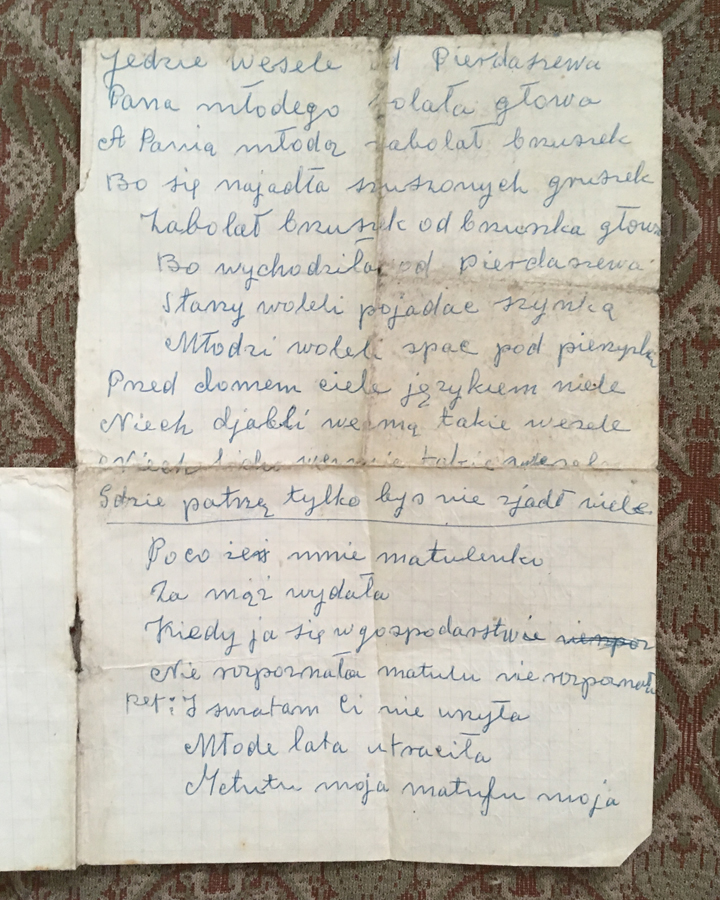 Jedzie wesele od Pierdaszewa
Pana młodego bolała głowa
A Panią młodą zabolał brzuszek
Bo się najadła suszonych gruszek
Zabolał brzuszek od brzuszka głowa
Bo wychodziła od pierdaszewa
Starzy woleli pojadac szynką
Młodzi woleli spac pod pierzynką
Przed domem ciele językiem miele
Niech djabli wezmą takie wesele
Niech takie
Gdzie patrzą tylko bys nie zjadł wiele
Poco żeś mnie matulenko
Za mąż wydała
Kiedy ja się w gospodarstwie
Nie rozpoznała matulu nie rozpoznała
Ref: I swiatam Ci nie uzyła
Młode lata utraciła
Matulu moja matulu moja